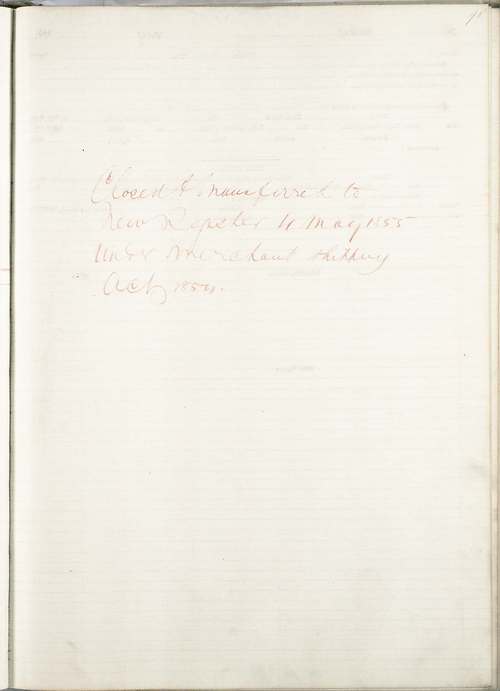 Closed & transferred to
New Register 11 May 1855
Under Merchant Shipping
Act 1854.